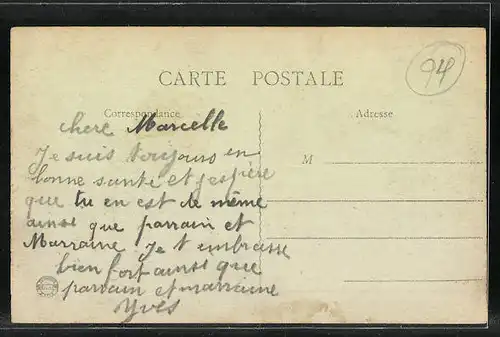 94
CARTE POSTALE
Correspondance
Adresse
chere Marcelle
Je suis toujours en
bonne santé et j'espère
que tu en est de même
ainsi que parrain et
Marraine Je t'embrasse
bien fort ainsi que
parrain et marraine
Yves
M